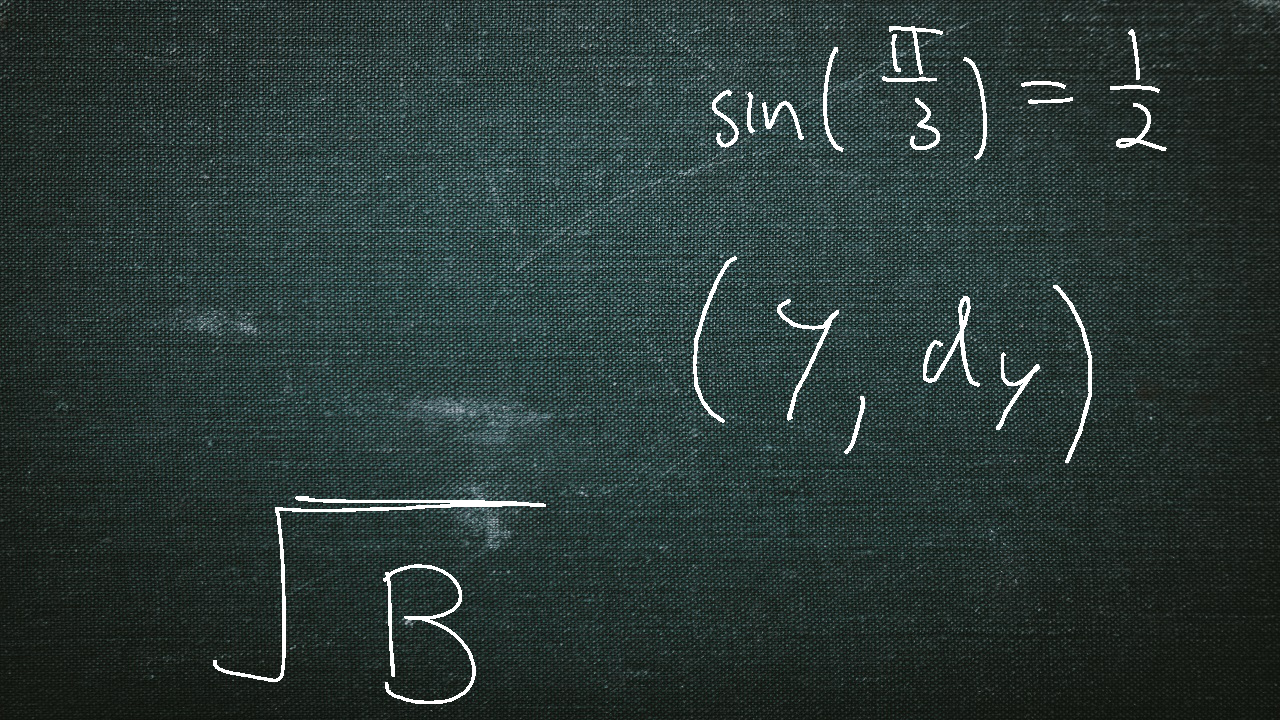 sin(π/3) = 1/2
(y, dy)
√B